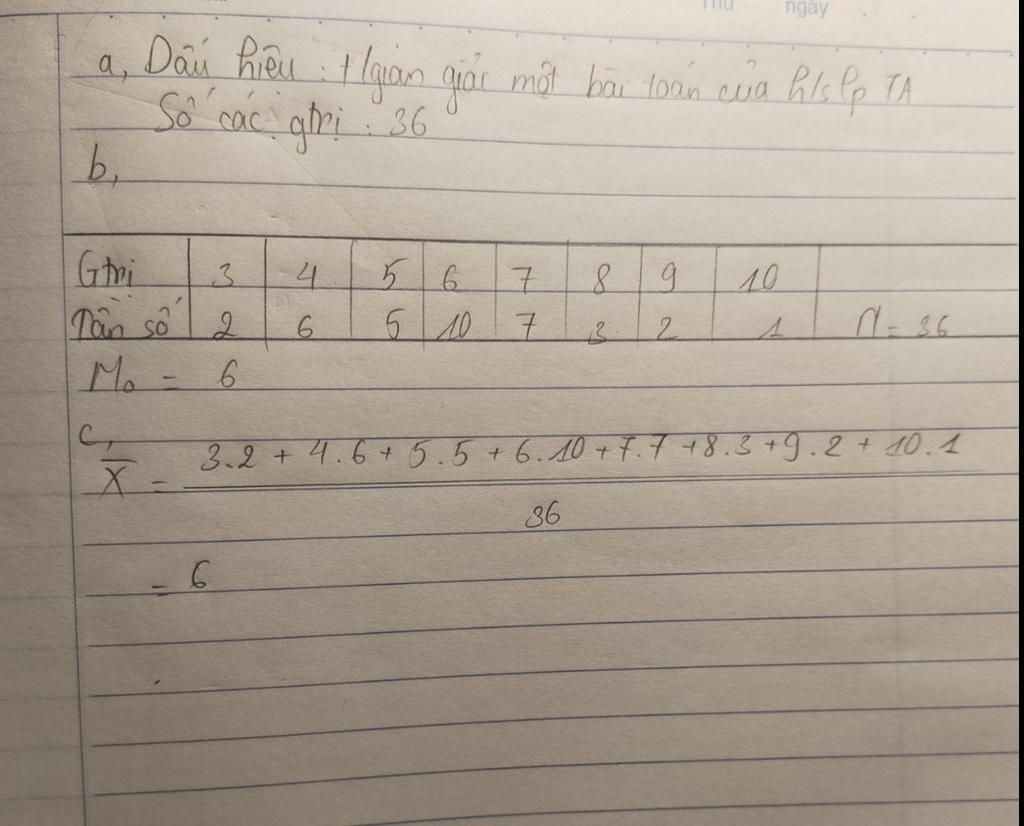 Thứ ngày
a, Dấu hiệu : t/gian giải một bài toán của h/s lp 7A
Số các gtrị : 36
b,
Gtrị 3 4 5 6 7 8 9 10
Tần số 2 6 5 10 7 3 2 1 N = 36
M₀ = 6
c,
X̅ = 3.2 + 4.6 + 5.5 + 6.10 + 7.7 + 8.3 + 9.2 + 10.1
36
= 6